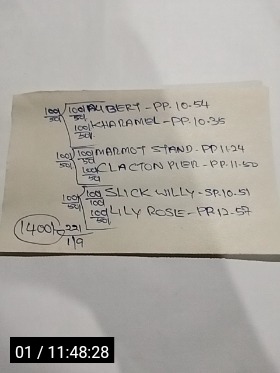 100/50 100/50 AUBERT - PP.10-54
100/50 KHARAMEL - PP.10-35
100/50 100/50 MARMOT STAND - PP 11-24
100/50 CLACTON PIER - PP.11-50
100/50 100/100 SLICK WILLY - SP.10-51
100/50 LILY ROSIE - PP 12-57
1400/-
119
01 / 11:48:28